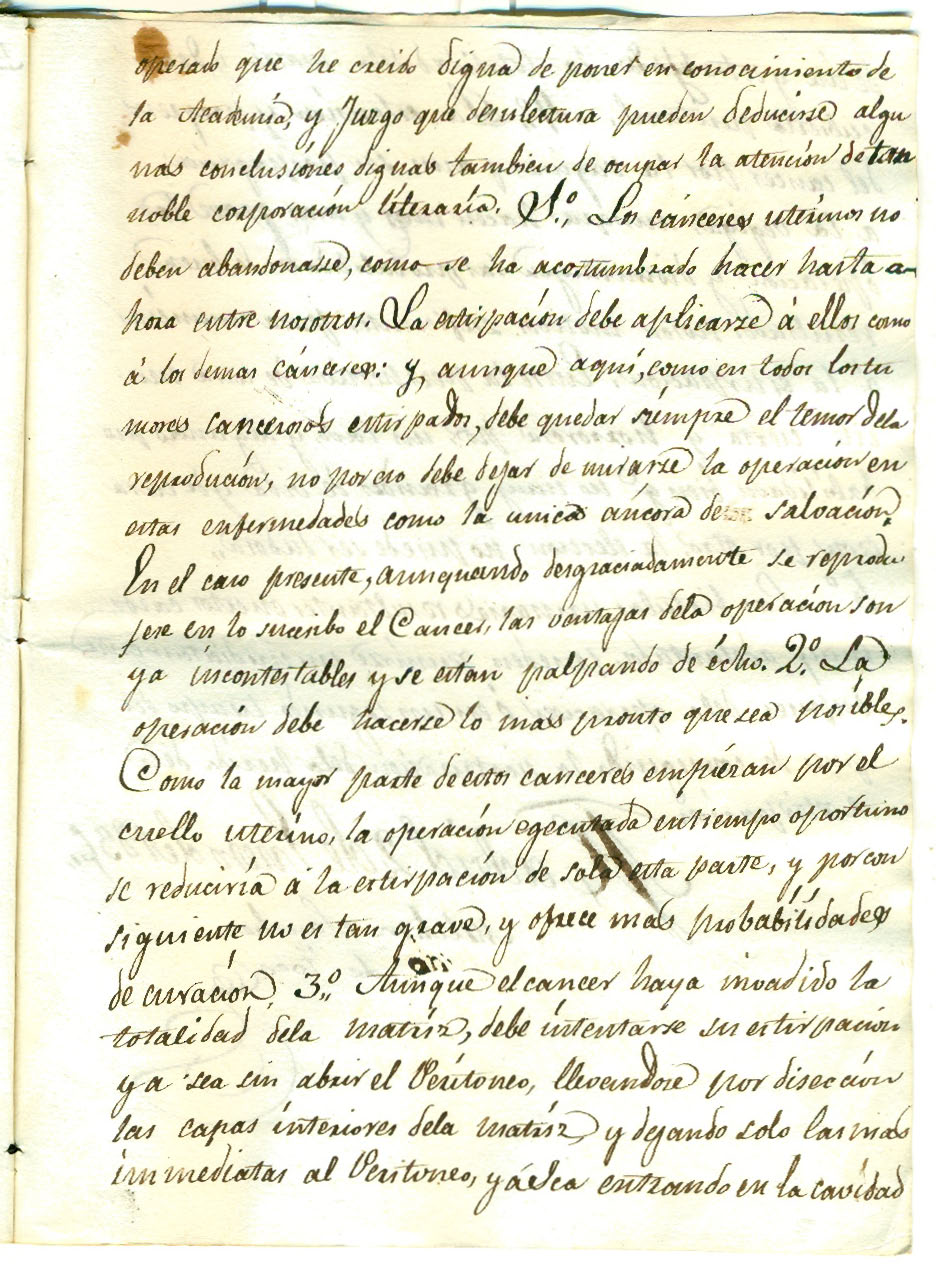 operado que he creido digna de poner en conocimiento de
la Academia, y Juzgo que desulectura pueden deducirse algu
nas conclusiónes dignas tambien de ocupar la atención de tan
noble corporación literaria. 1.º, Los cánceres uterinos no
deben abandonarse, como se ha acostumbrado hacer hasta a-
hora entre nosotros. La estirpación debe aplicarse á ellos como
á los demas cánceres: y, aunque aquí, como en todos los tu
mores cancerosos estirpados, debe quedar siémpre el temor dela
reprodución, no por eso debe dejar de mirarse la operación en
estas enfermedades como la unica áncora de salvación.
En el caso presente, aunquando desgraciadamente se reprodu
jese en lo sucesibo el Cancer, las ventajas dela operación son
ya incontestables y se están palpando de écho. 2.º La
operación debe hacerse lo mas pronto que sea posible.
Como la mayor parte de estos canceres empiézan por el
cuello uterino, la operación egecutada entiempo oportuno
se reduciría á la estirpación de sola esta parte, y por con
siguiente no es tan grave, y ofrece mas probabilidades
de curación. 3.º Aunque el cancer haya invadido la
totalidad dela matríz, debe intentarse su estirpación
ya sea sin abrir el Peritoneo, llevandose por disección
las capas interiores dela matríz, y dejando solo las mas
inmediatas al Peritoneo, yá sea entrando en la cavidad